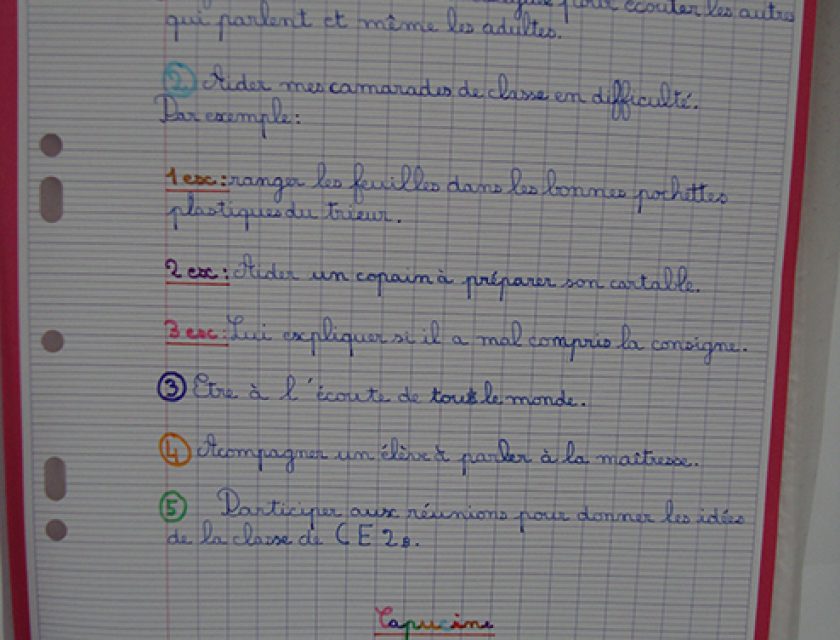 pour écouter les autres
qui parlent et même les adultes.
② Aider mes camarades de classe en difficulté.
Par exemple:
1 ex: ranger les feuilles dans les bonnes pochettes
plastiques du trieur.
2 ex: Aider un copain à préparer son cartable.
3 ex: Lui expliquer si il a mal compris la consigne.
③ Etre à l'écoute de tous le monde.
④ Acompagner un élève à parler à la maitresse.
⑤ Participer aux réunions pour donner les idées
de la classe de CE2B.
Capucine